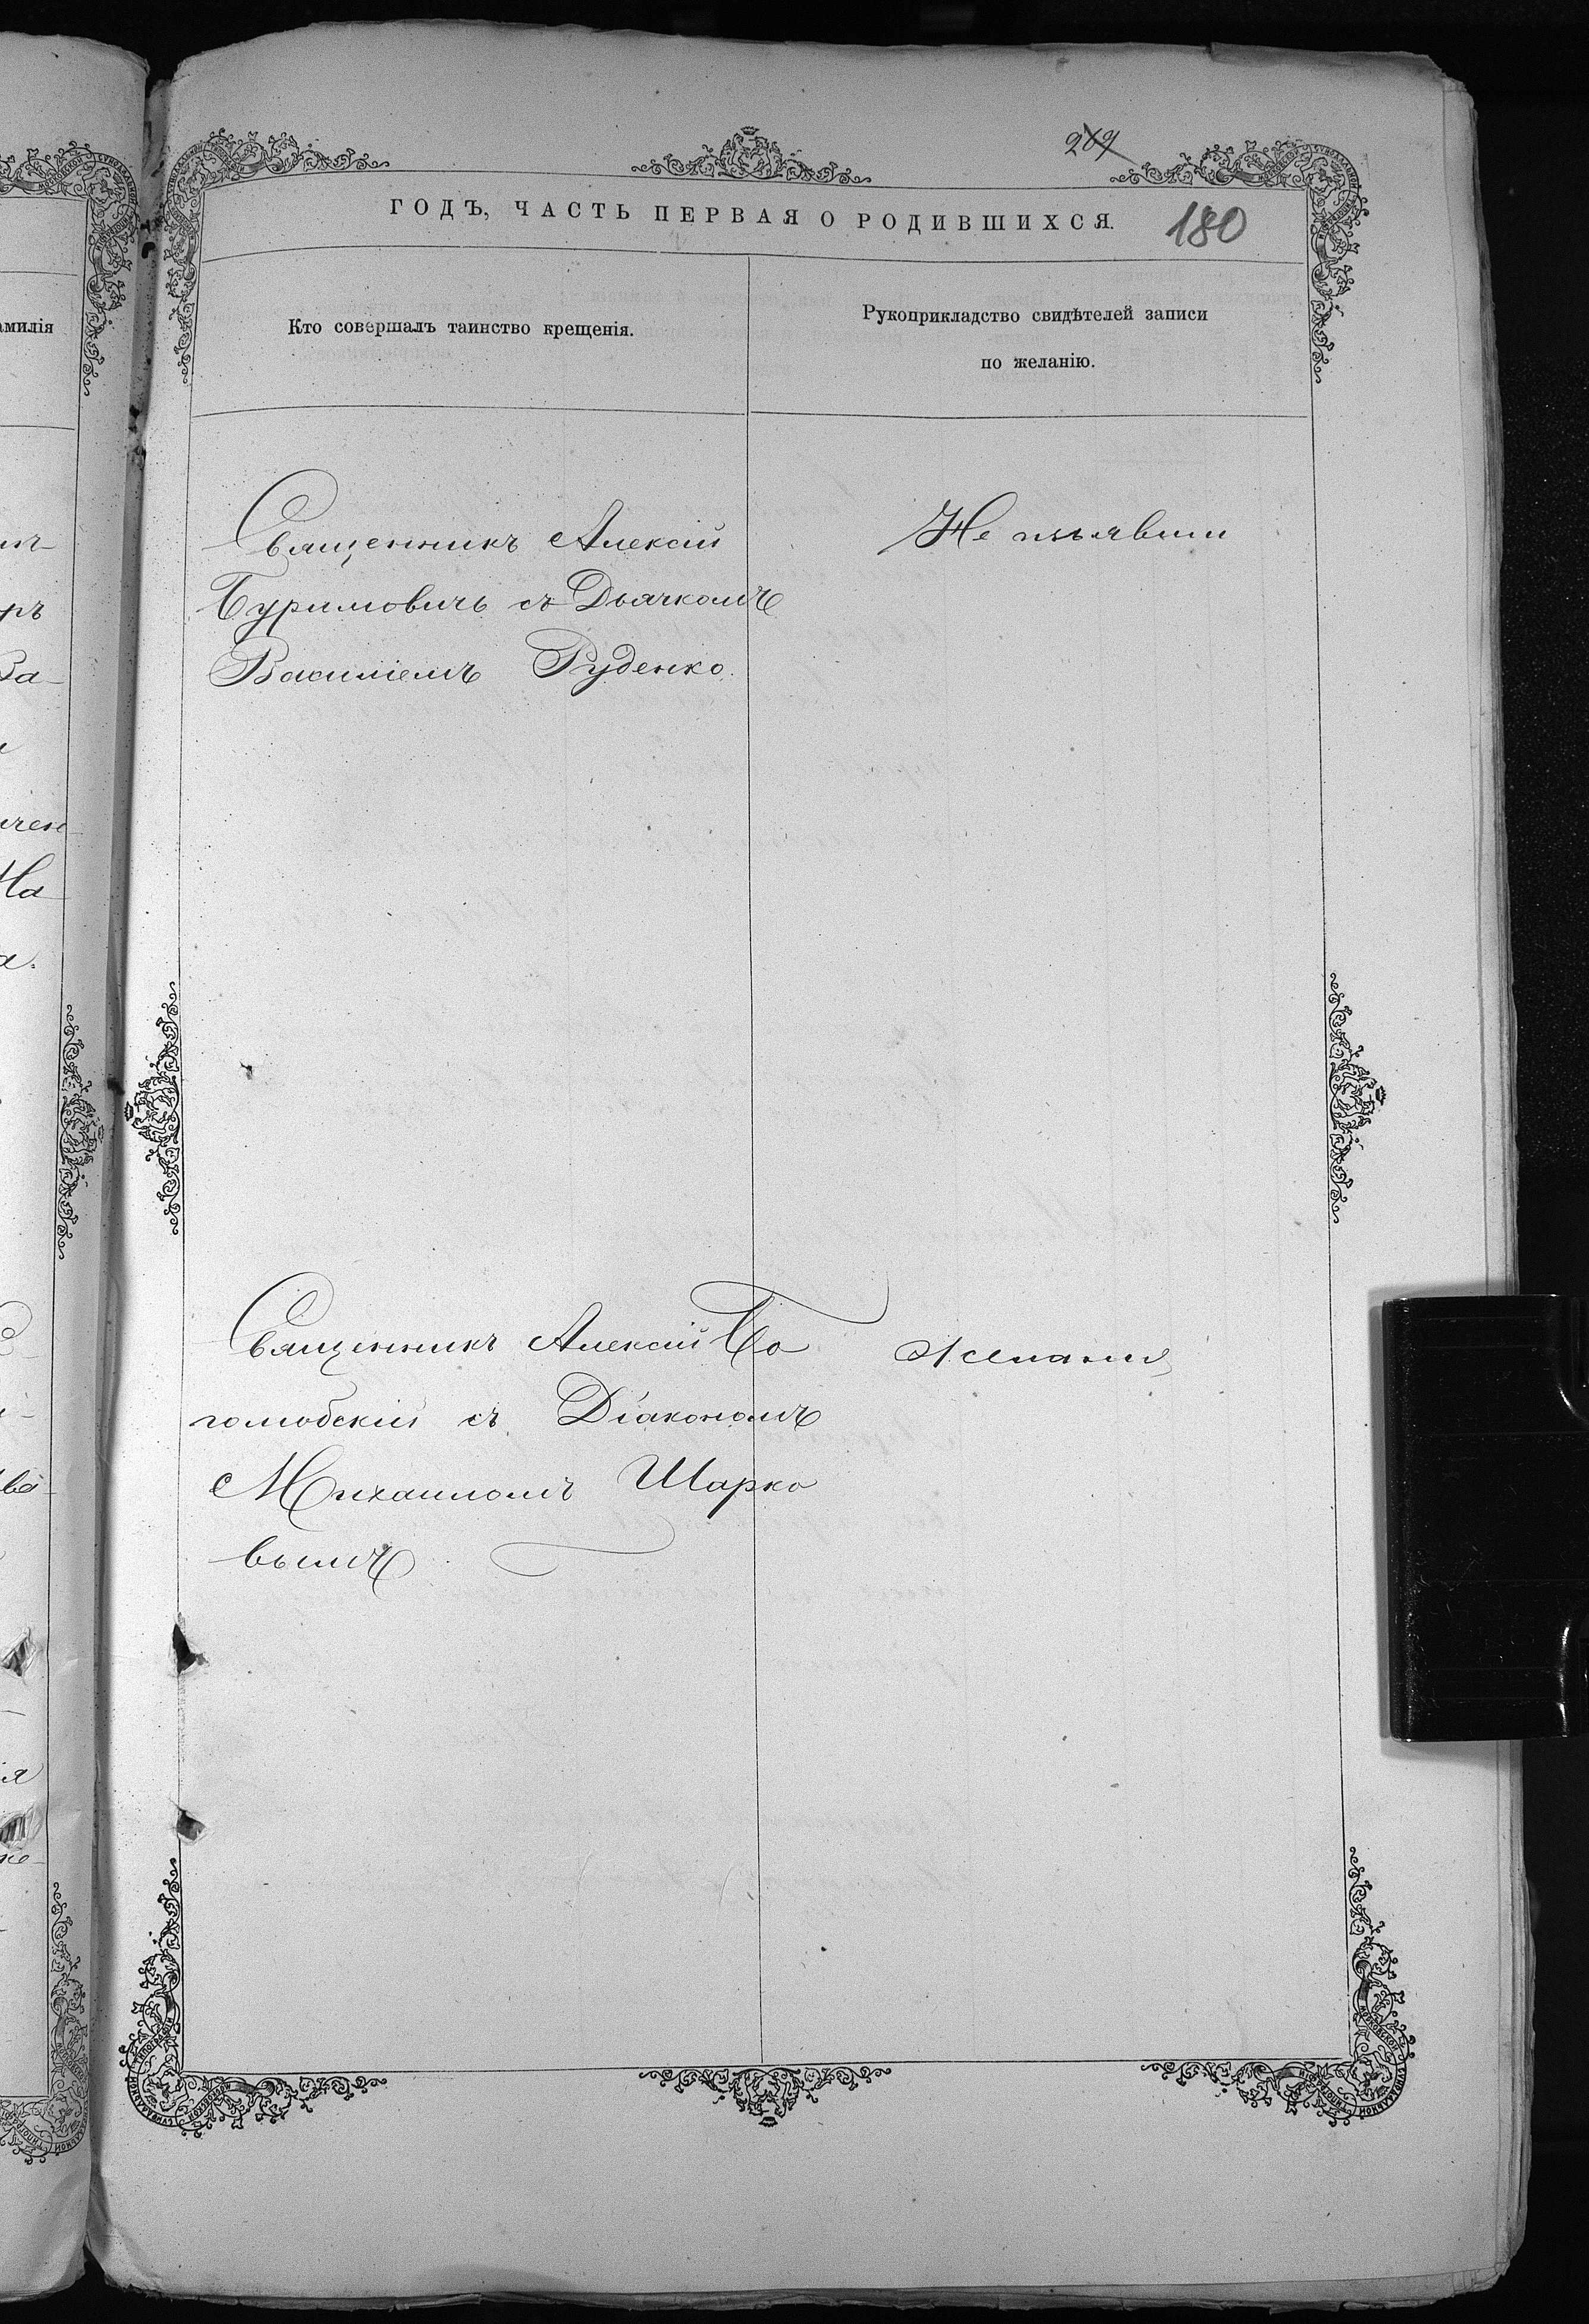 269
ГОДЪ, ЧАСТЬ ПЕРВАЯ О РОДИВШИХСЯ.
180
амилія
Кто совершалъ таинство крещенія.
Рукоприкладство свидѣтелей записи
по желанію.
Священникъ Алексій
Буримовичъ съ Дьячкомъ
Василіемъ Руденко.
Не изъявили
Священникъ Алексій Бо
голюбскій съ Діакономъ
Михаиломъ Шарко
вымъ
желанія
ръ
За
чен
На
а.